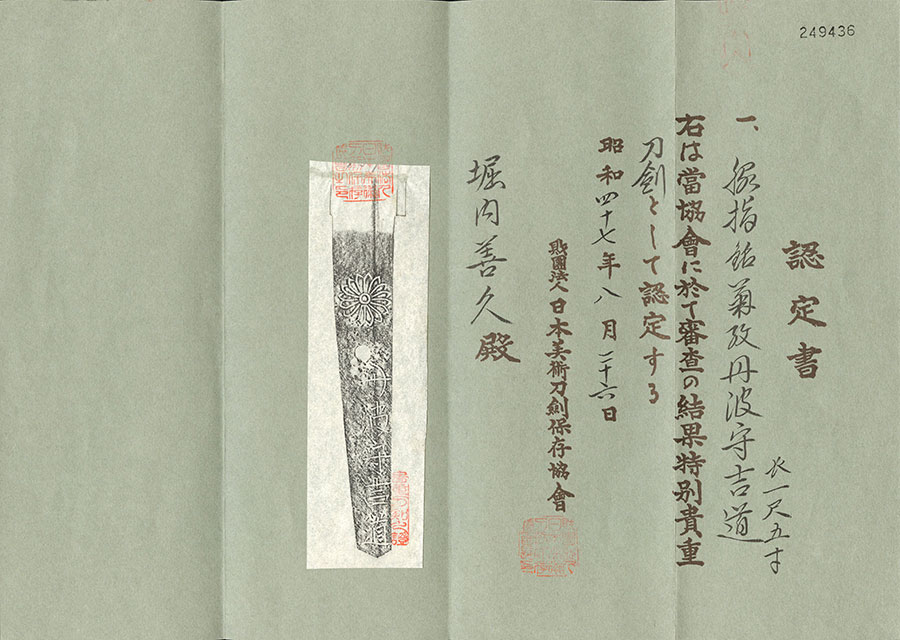 249436
認定書
一、脇指銘菊紋丹波守吉道
長一尺五寸
右は當協會に於て審査の結果特別貴重
刀劍として認定する
昭和四十七年八月二十六日
財團法人日本美術刀劍保存協會
堀内善久殿
丹波守吉道